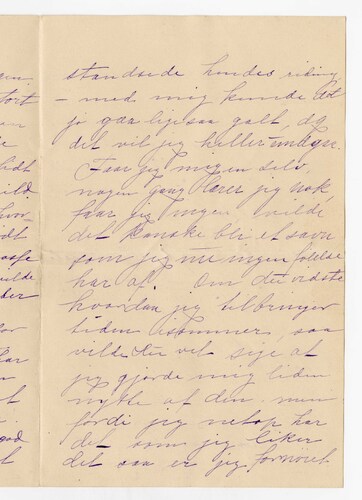 standsede hendes riding
- med mig kunde det
jo gaa ligesaa galt, og
det vil jeg heller undgaa.
Faar jeg migen selv,
nogen gang lærer jeg nok,
faar jeg ingen vilde
det kanske bli et savn
som jeg nu ingen følelse
har af. Om du vidste
hvordan jeg tilbringer
tiden isommer, saa
vilde du vel sige at
jeg gjorde mig liden
nytte af den. men
fordi jeg netop har
det som jeg liker
det saa er jeg fornøiet